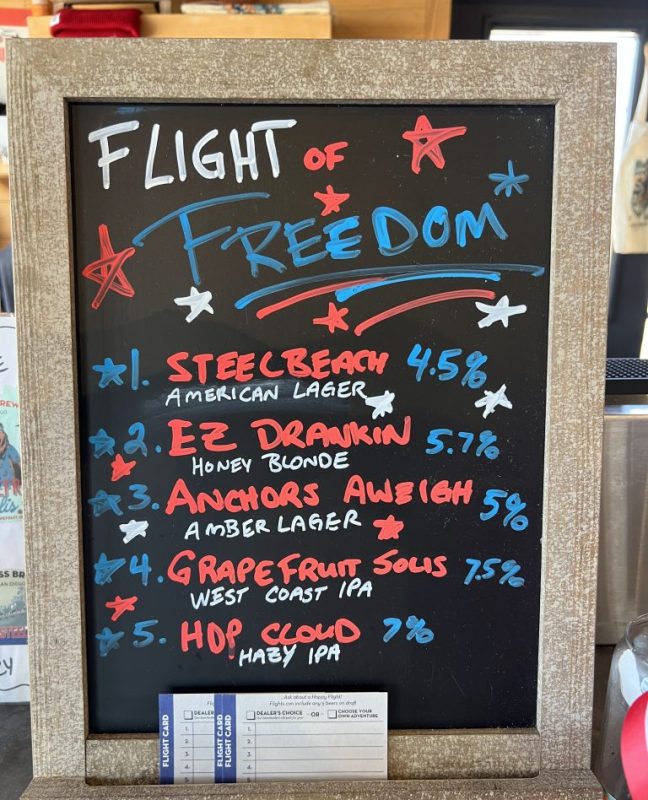 FLIGHT OF
FREEDOM
1. STEELBEACH 4.5%
AMERICAN LAGER
2. EZ DRANKIN 5.7%
HONEY BLONDE
3. ANCHORS AWEIGH 5%
AMBER LAGER
4. GRAPEFRUIT SOLIS 7.5%
WEST COAST IPA
5. HOP CLOUD 7%
HAZY IPA
Ask about a Happy Flight!
Flights can include any 5 beers on draft
FLIGHT CARD
DEALER'S
1.
2.
3.
4.
FLIGHT CARD
FLIGHT CARD
DEALER'S CHOICE - OR - CHOOSE YOUR
OWN ADVENTURE
1.
2.
3.
4.
5.